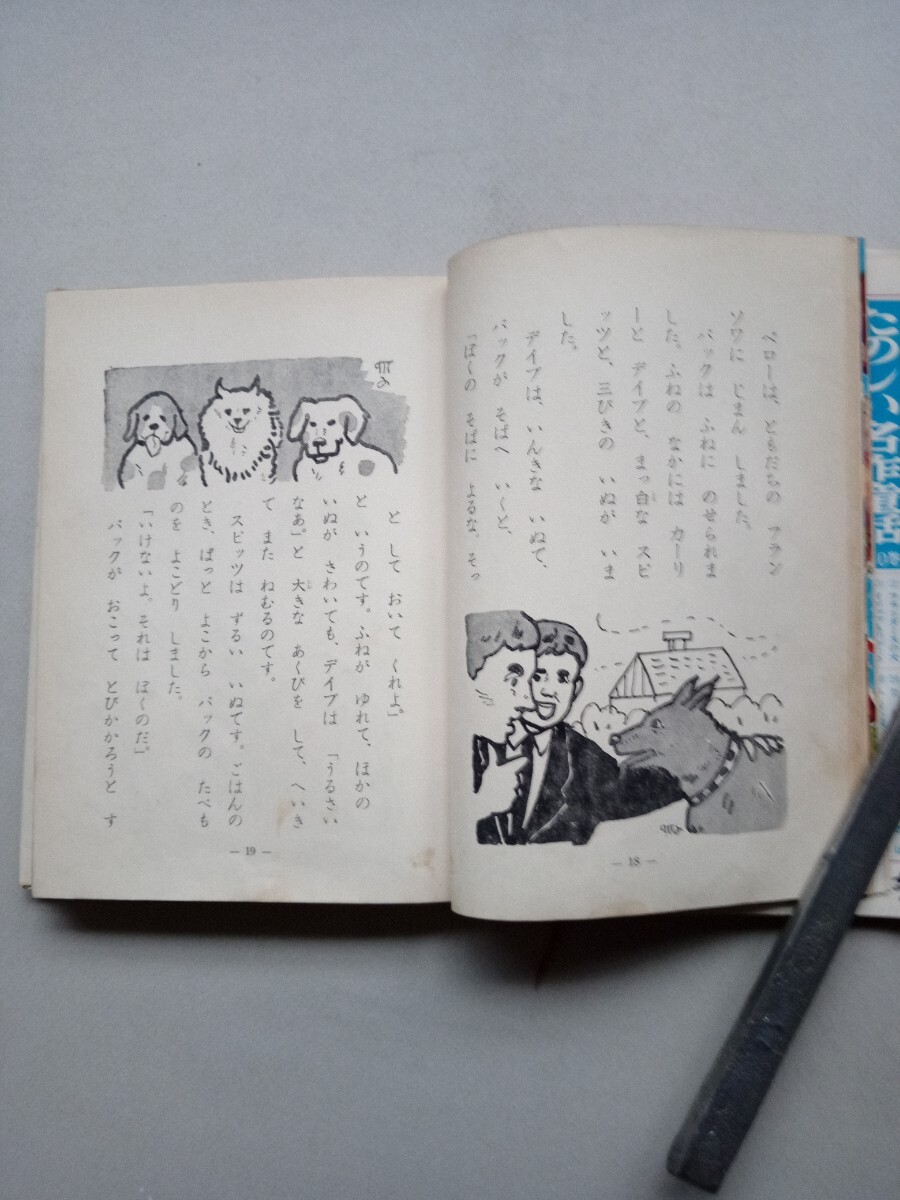 ペローは、ともだちの フラン
ソワに じまん しました。
バックは ふねに のせられま
した。ふねの なかには カーリ
ーと デイブと、まっ白な スピ
ッツと、三びきの いぬが いま
した。
デイブは、いんきな いぬで、
バックが そばへ いくと、
「ぼくの そばに よるな。そっ
— 18 —
と して おいて くれよ。」
と いうのです。ふねが ゆれて、ほかの
いぬが さわいでも、デイブは 「うるさい
なあ。」と 大きな あくびを して、へいき
で また ねむるのです。
スピッツは ずるい いぬです。ごはんの
とき、ぱっと よこから バックの たべも
のを よこどり しました。
「いけないよ。それは ぼくのだ。」
バックが おこって とびかかろうと す
— 19 —
たのしい名作童話